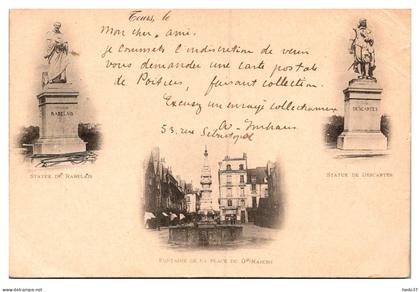 Tours, le
Mon cher ami.
je commets l'indiscretion de venir
vous demander une carte postale
de Poitiers, faisant collection.
Excusez un enragé collectionneur
53, rue
RABELAIS
DESCARTES
STATUE DE RABELAIS
STATUE DE DESCARTES
FONTAINE DE LA PLACE DU Gd MARCHÉ
www.hedo37.com